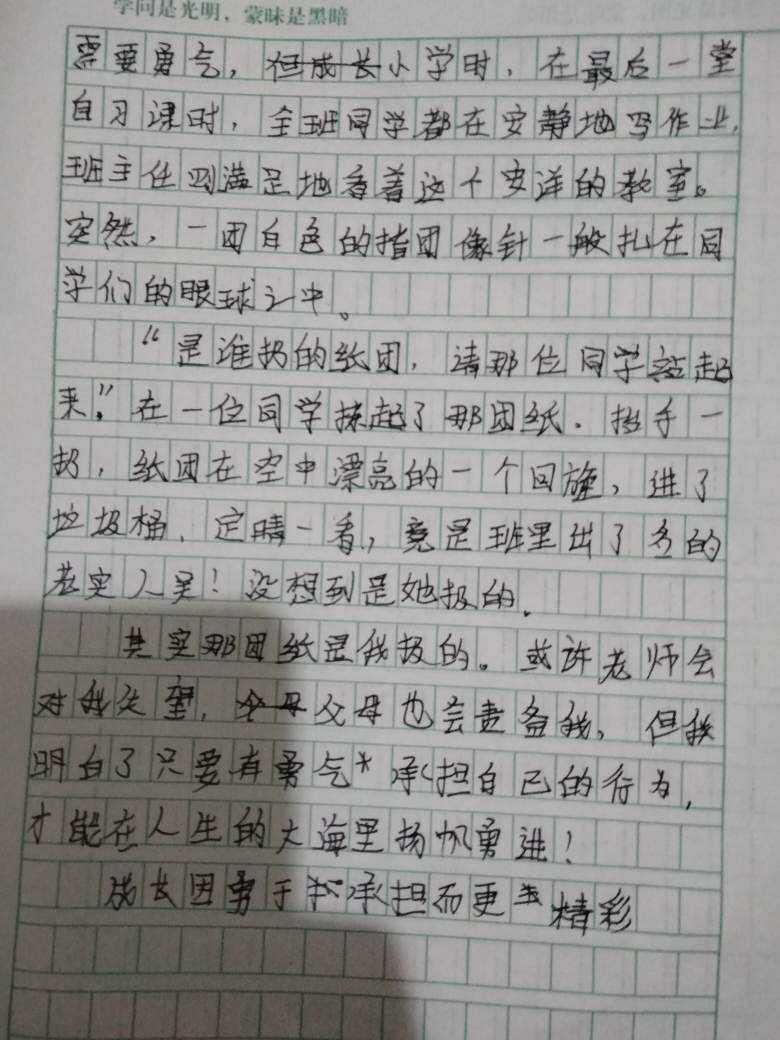 学问是光明，蒙昧是黑暗
需要勇气，但成长小学时，在最后一堂
自习课时，全班同学都在安静地写作业，
班主任满足地看着这个安详的教室。
突然，一团白色的指团像针一般扎在同
学们的眼球之中。
“是谁扔的纸团，请那位同学站起
来”，在一位同学拣起了那团纸．手一
扔，纸团在空中漂亮的一个回旋，进了
垃圾桶，定睛一看，竟是班里出了名的
老实人吴！没想到是她扔的．
其实那团纸是我扔的。或许老师会
对我失望，父母父母也会责备我，但我
明白了只要有勇气承担自己的行为，
才能在人生的大海里扬帆勇进！
成长因勇于承担而更精彩